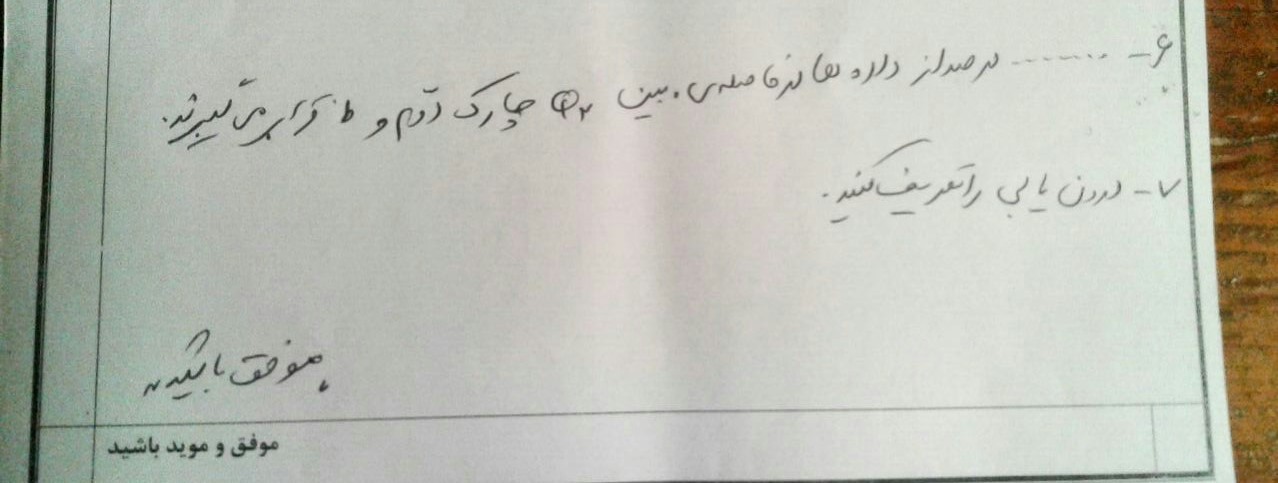 ۶- ........ درصد از داده ها در فاصله‌ی بین Q۲ چارک دوم و b قرار می گیرند.
۷- درون یابی را تعریف کنید.
موفق باشید
موفق و موید باشید